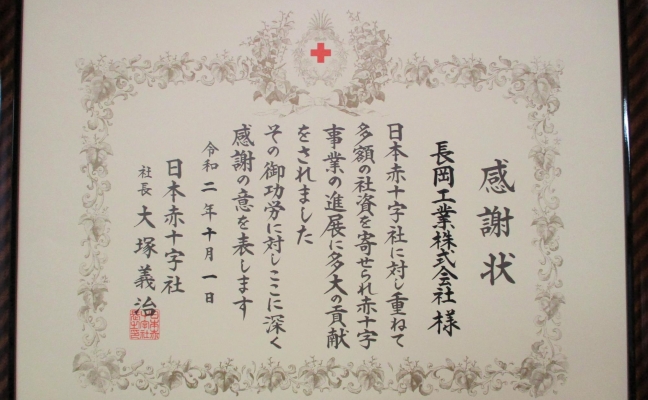 感謝状
長岡工業株式会社 様
日本赤十字社に対し重ねて
多額の社資を寄せられ赤十字
事業の進展に多大の貢献
をされました
その御功労に対しここに深く
感謝の意を表します
令和二年十月一日
日本赤十字社
社長 大塚義治